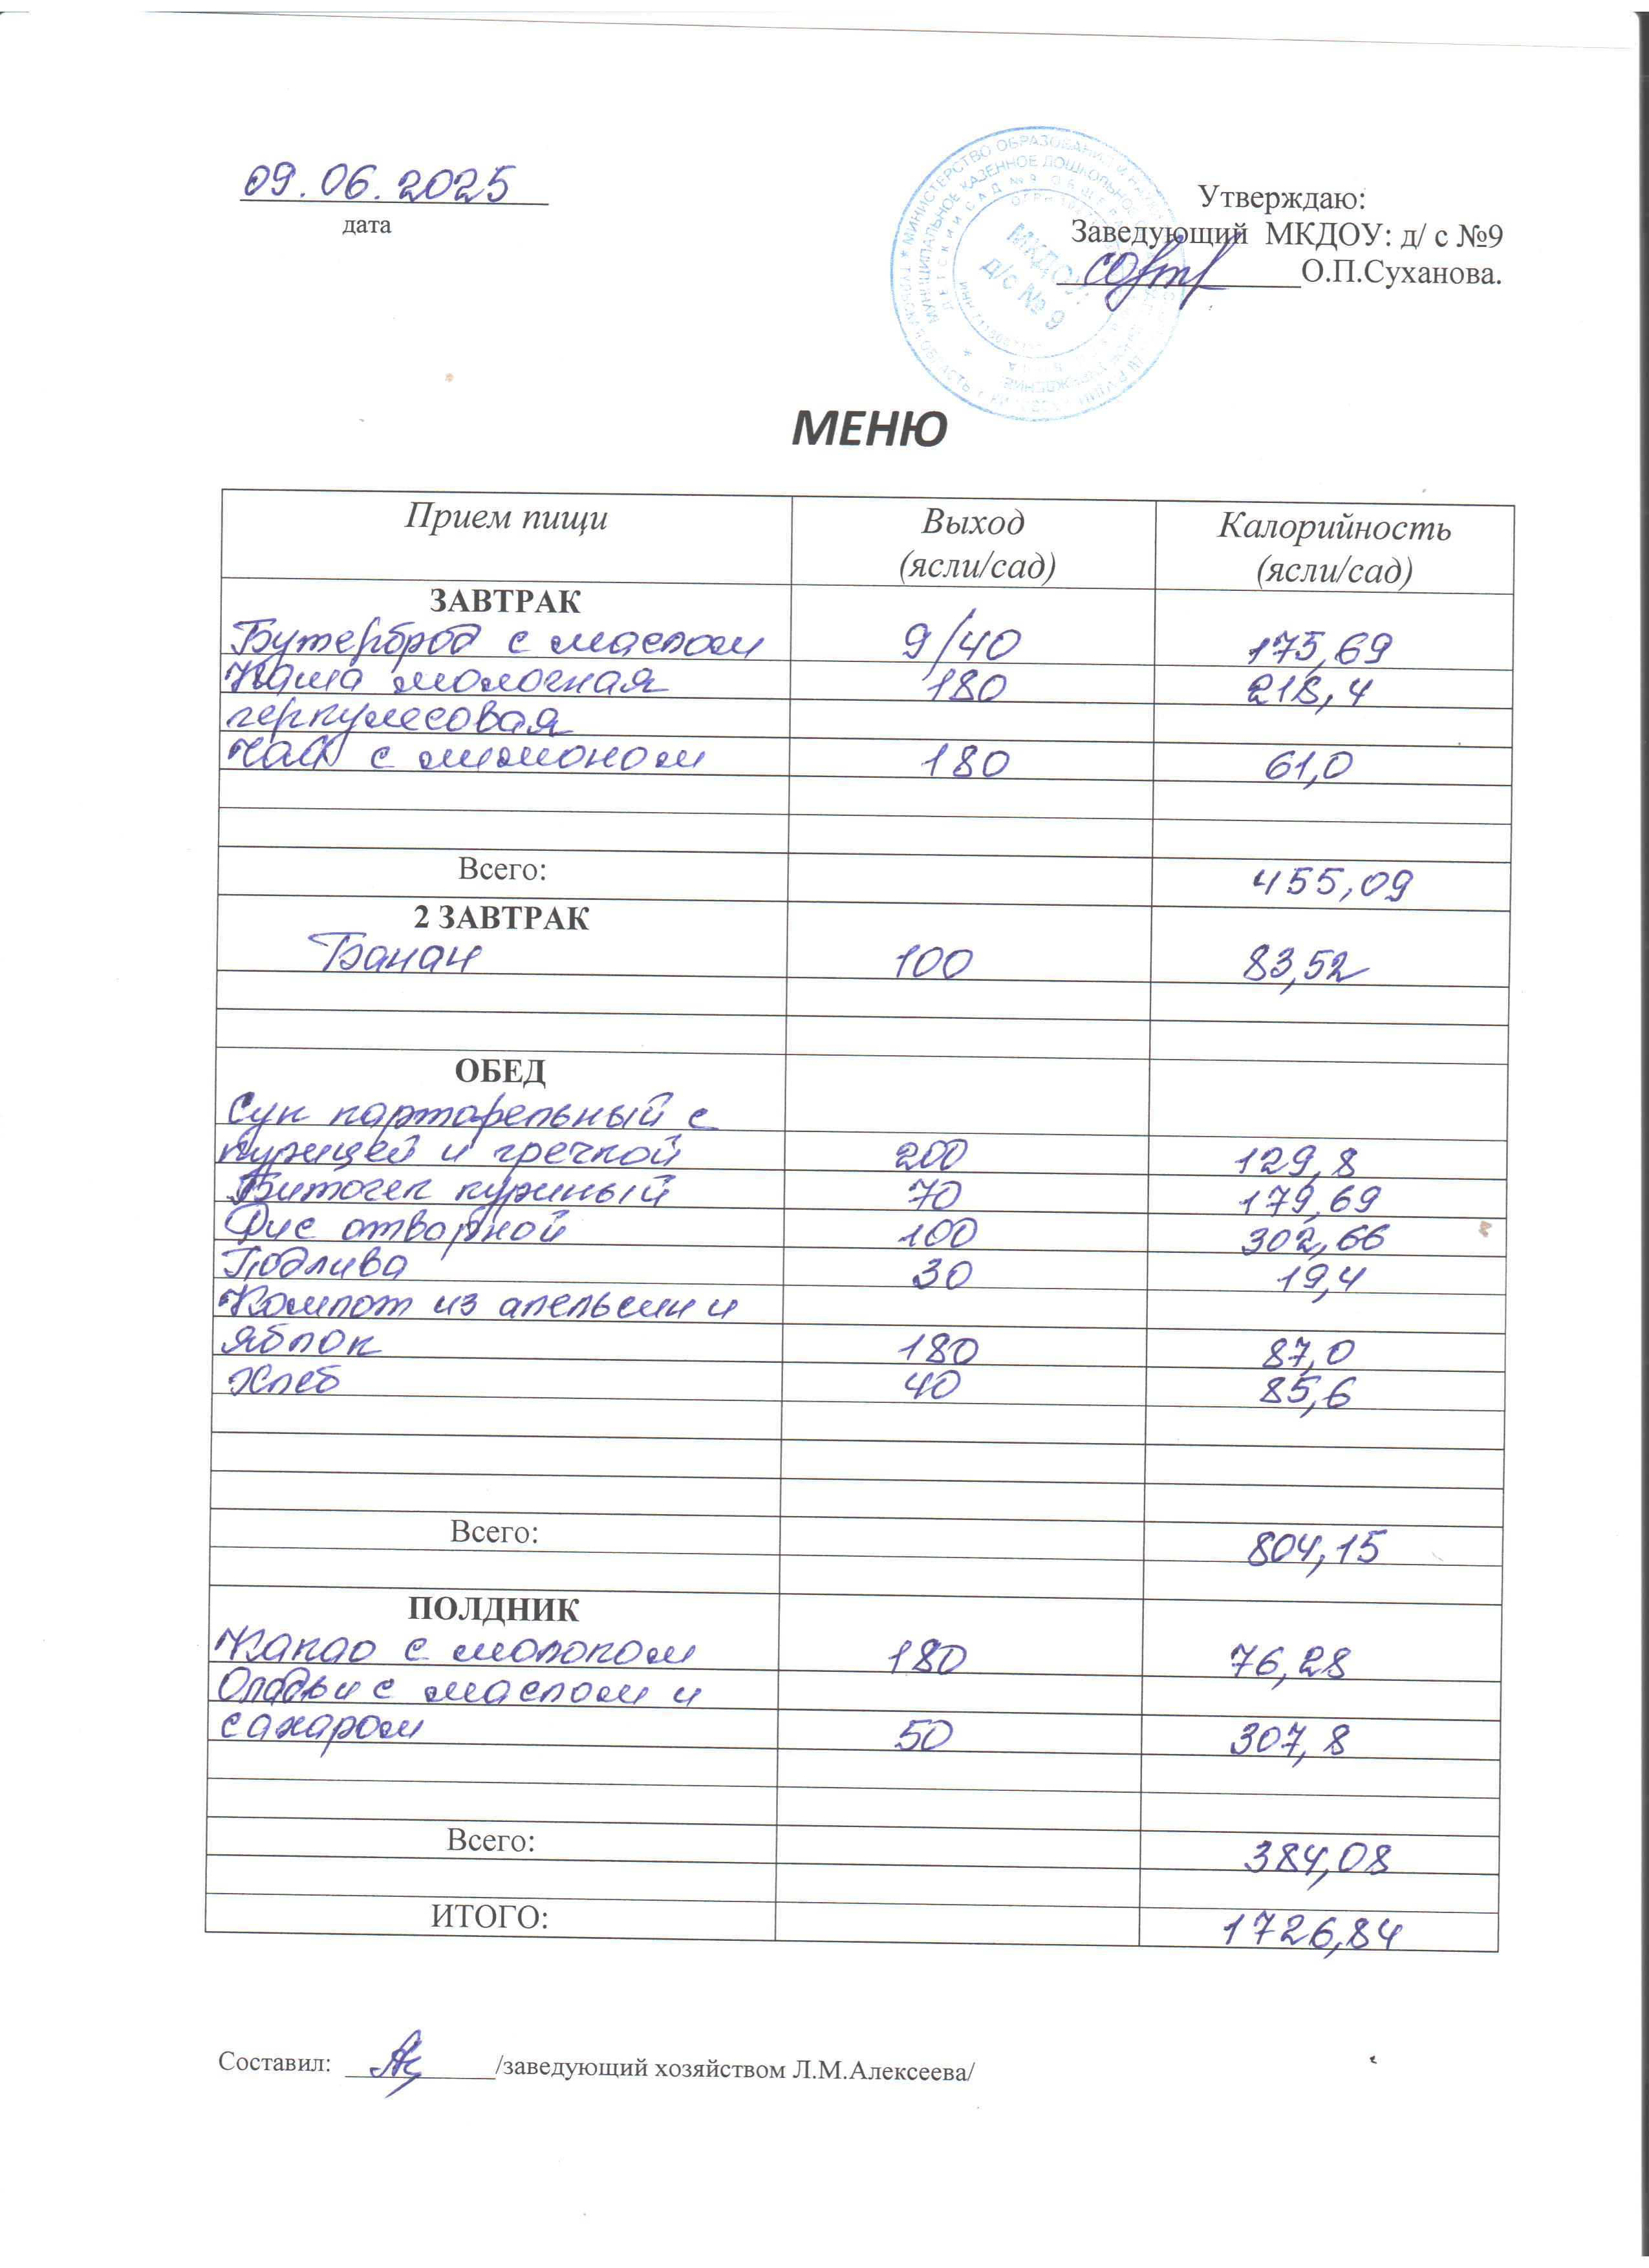 09.06.2025
дата
Утверждаю:
Заведующий МКДОУ: д/ с №9
О.П.Суханова.
МКДОУ:
д/с № 9
МЕНЮ
Прием пищи Выход (ясли/сад) Калорийность (ясли/сад)
ЗАВТРАК
Бутерброд с маслом 9/40 175,69
Каша молочная 180 218,4
геркулесовая
Чай с лимоном 180 61,0
Всего: 455,09
2 ЗАВТРАК
Банан 100 83,52
ОБЕД
Суп картофельный с
курицей и гречкой 200 129,8
Биточек куриный 70 179,69
Рис отварной 100 302,66
Подлива 30 19,4
Компот из апельсин и
яблок 180 87,0
Хлеб 40 85,6
Всего: 804,15
ПОЛДНИК
Какао с молоком 180 76,28
Оладьи с маслом и
сахаром 50 307,8
Всего: 384,08
ИТОГО: 1726,84
Составил: /заведующий хозяйством Л.М.Алексеева/